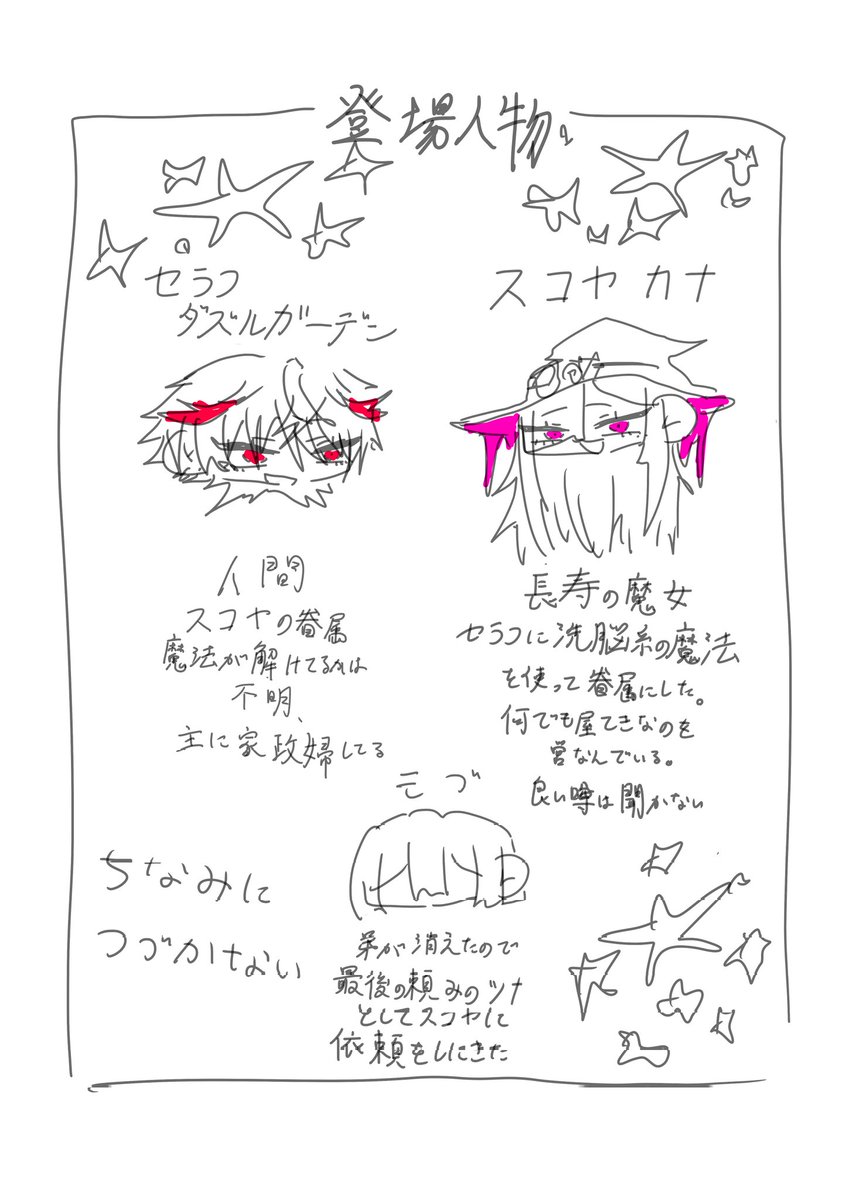 登場人物
セラフ
ダズルガーデン
人間
スコヤの眷属
魔法が解けてるかは
不明、
主に家政婦してる
スコヤカナ
長寿の魔女
セラフに洗脳系の魔法
を使って眷属にした。
何でも屋てきなのを
営なんでいる。
良い噂は聞かない
モブ
弟が消えたので
最後の頼みのツナ
としてスコヤに
依頼をしにきた
ちなみに
つづかけない